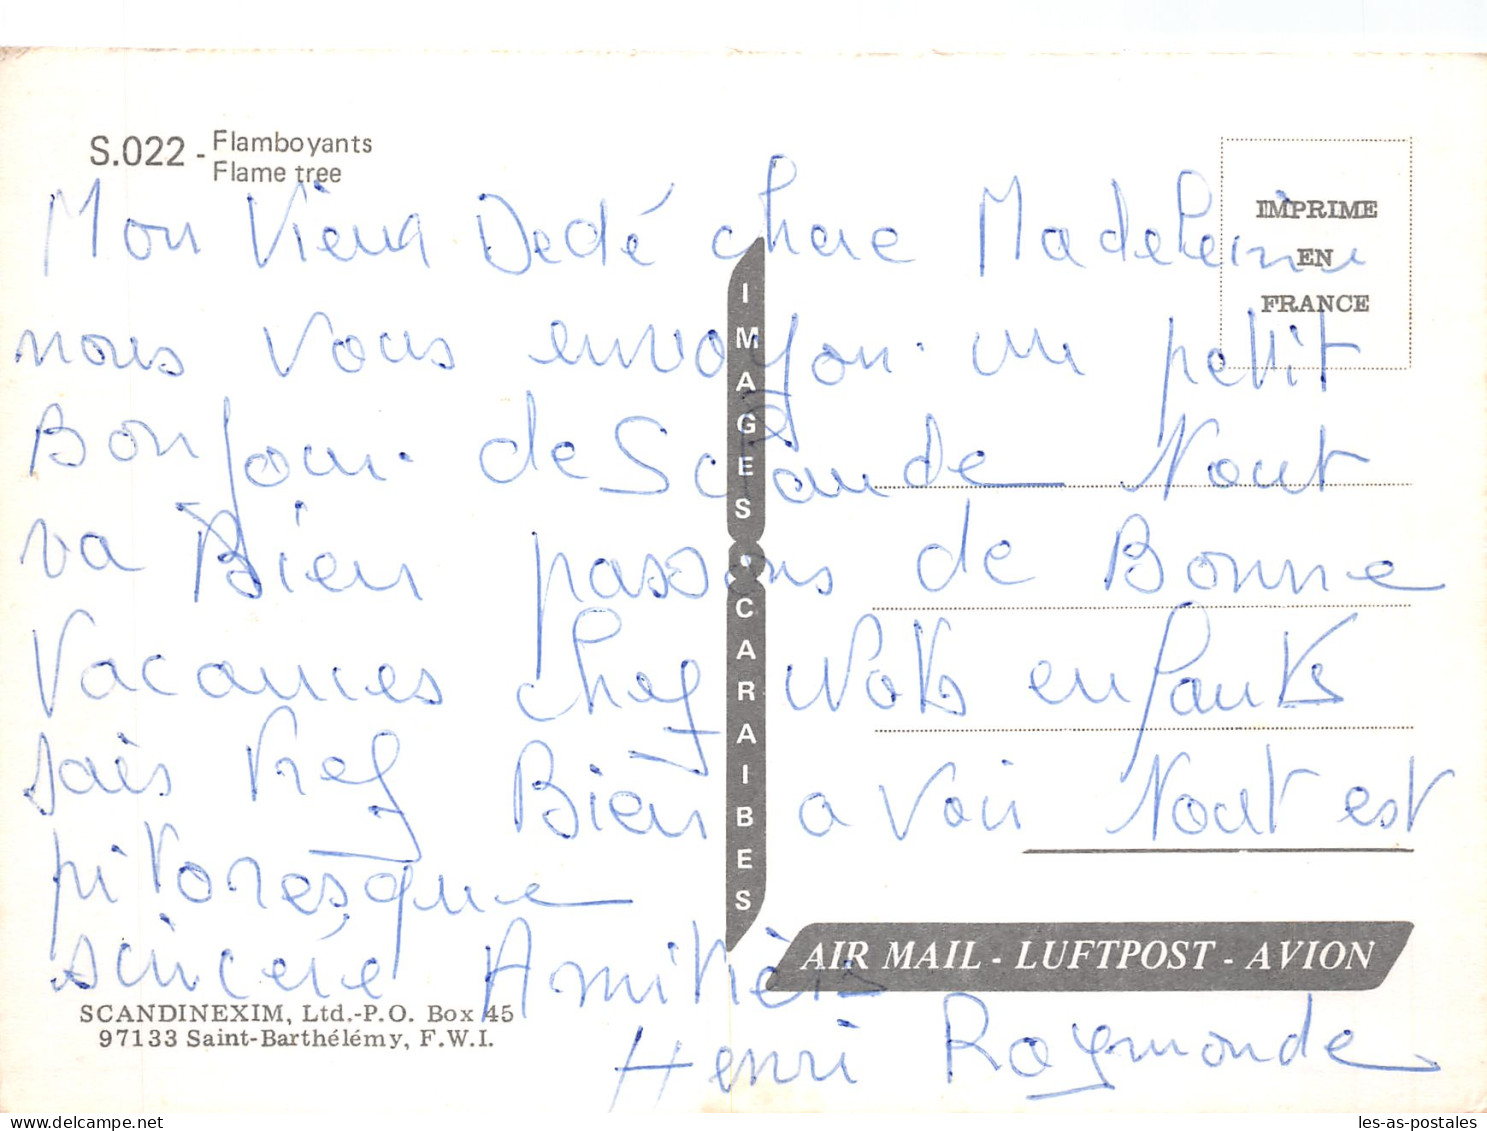 S.022 - Flamboyants
Flame tree
IMPRIME
EN
FRANCE
Mon Vieux Dedé chere Madeleine
nous vous envoyon un petit
Bonjour de Nout
va Bien passons de Bonne
Vacances cheg Nots enfants
sais treg Bien a voir Nout est
pitoresque
sincére Amitiés
Henri Raymonde
IMAGES • CARAIBES
AIR MAIL - LUFTPOST - AVION
SCANDINEXIM, Ltd.-P.O. Box 45
97133 Saint-Barthélémy, F.W.I.
les-as-postales